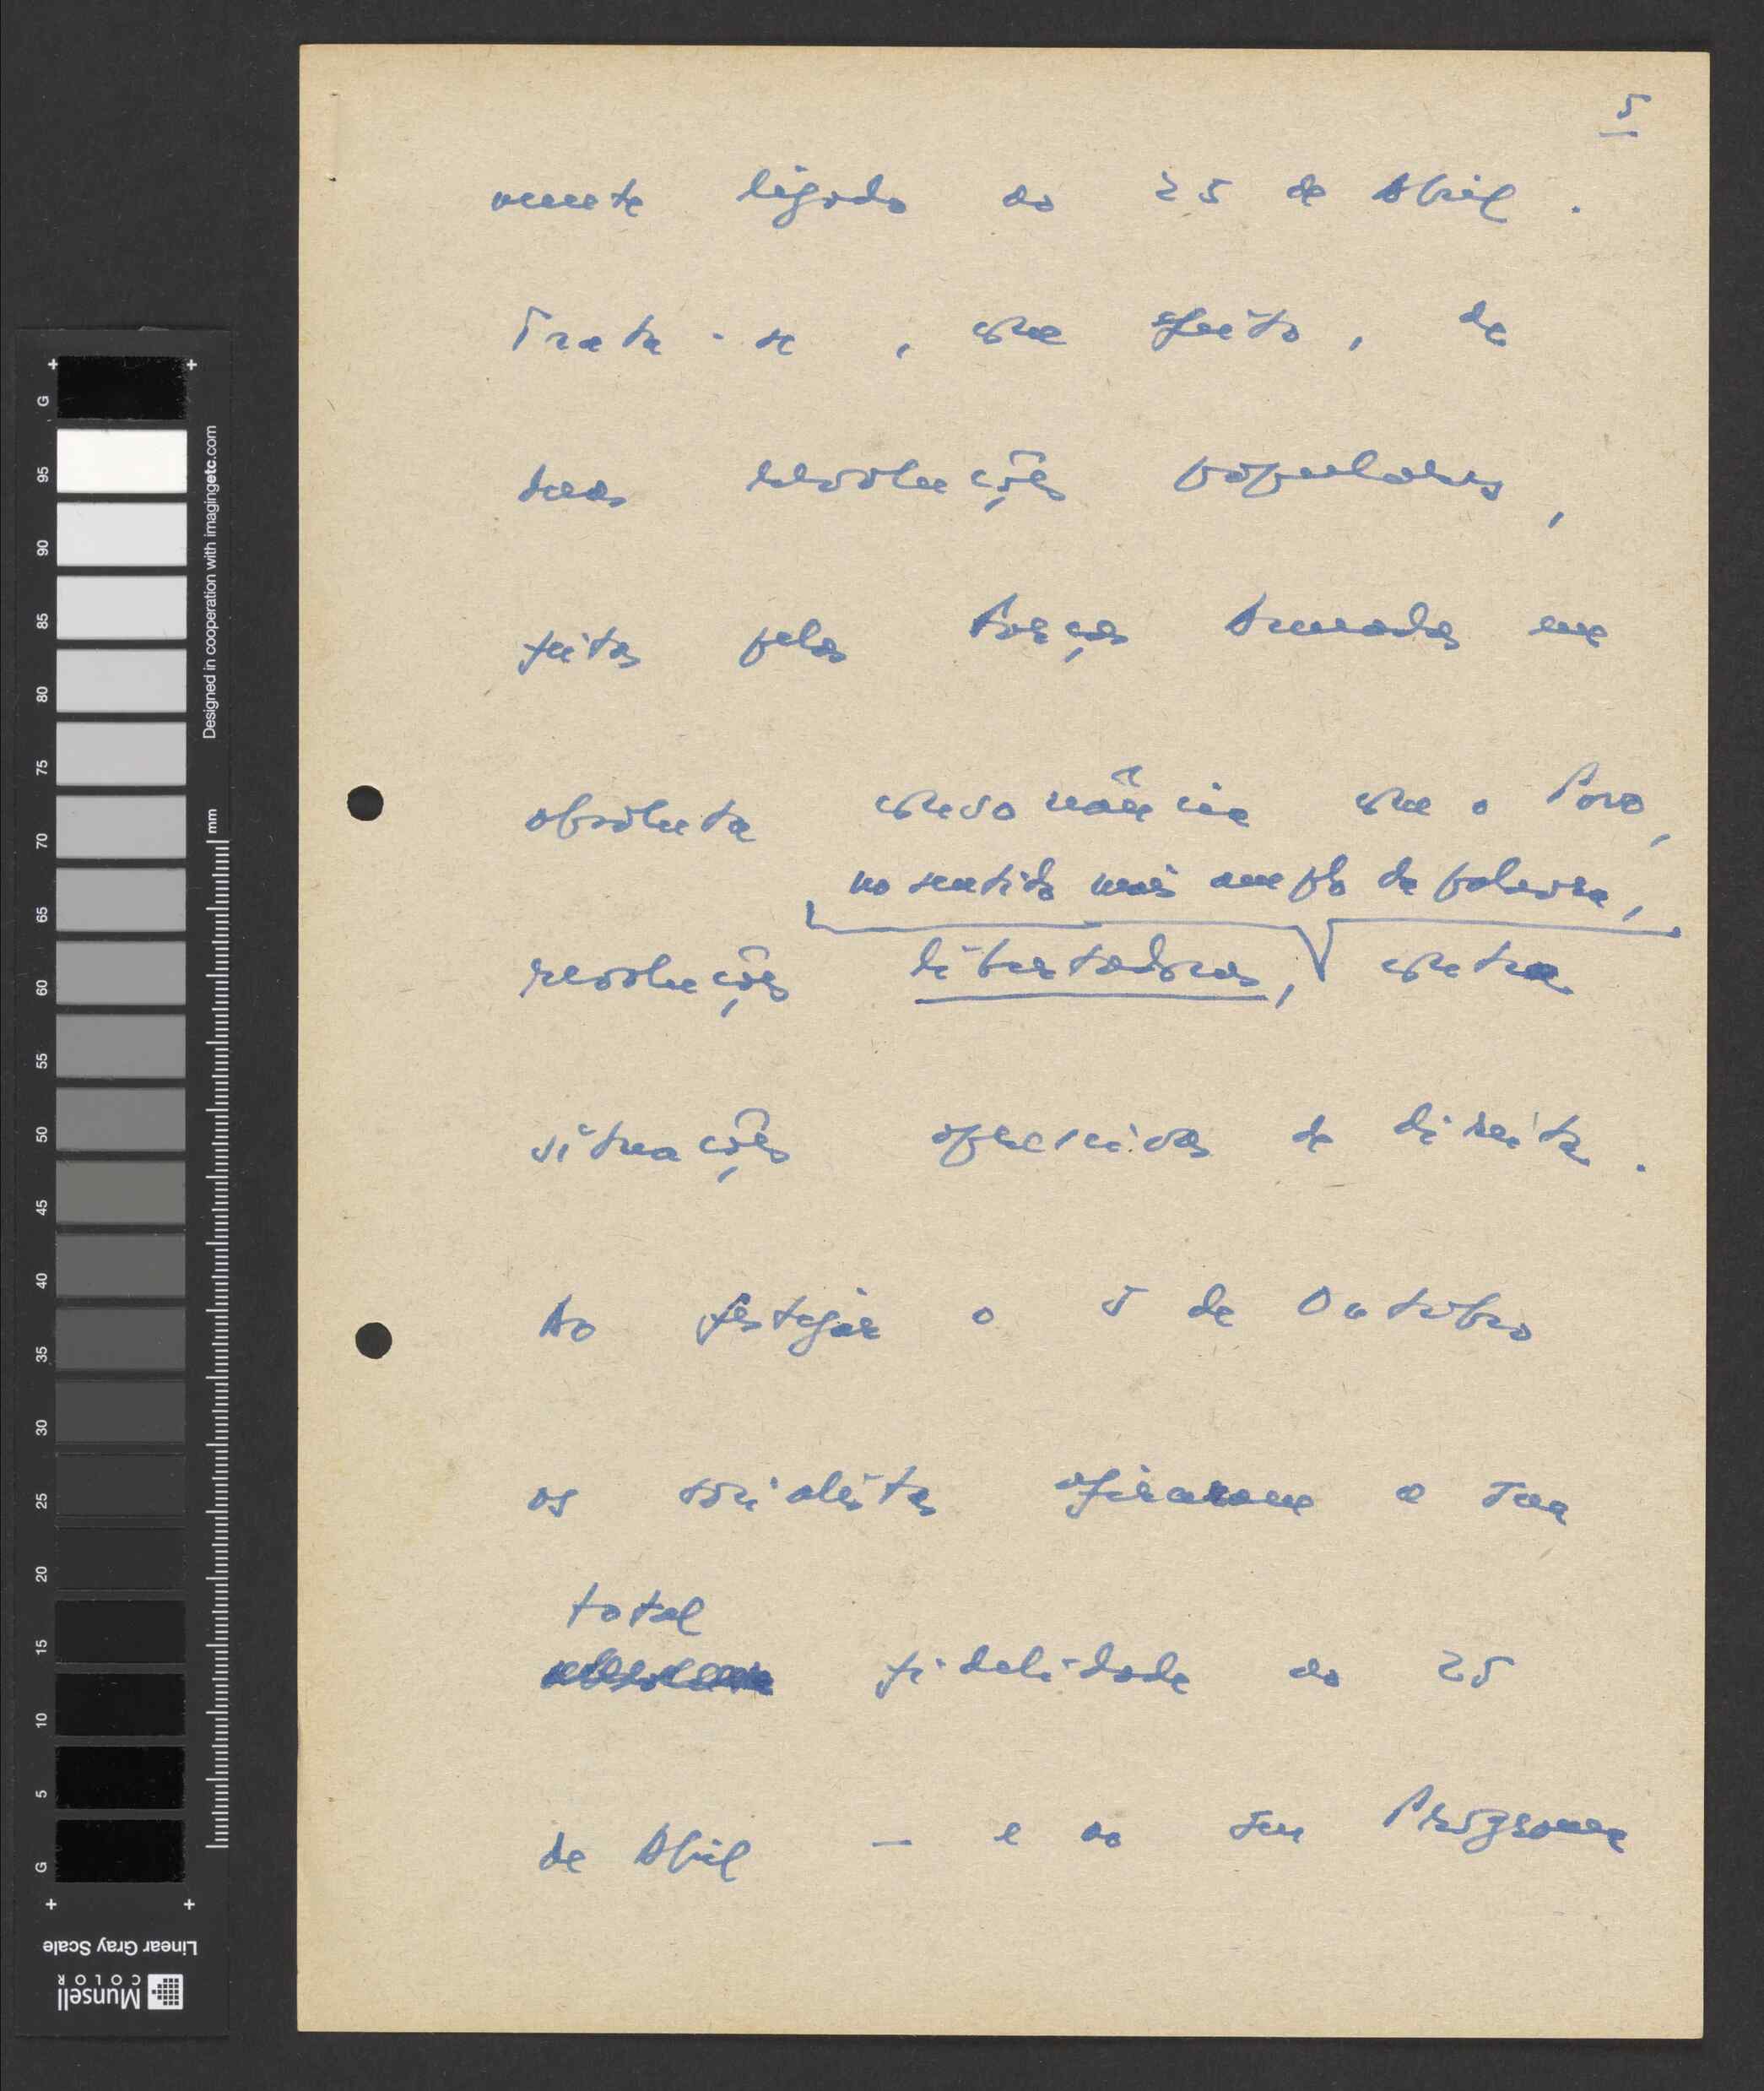 5
mente ligado ao 25 de Abril.
Trata-se, com efeito, de
duas revoluções populares,
feitas pelas Forças Armadas em
absoluta consonância com o Povo,
no sentido mais amplo da palavra,
revoluções libertadoras, contra
situações opressivas de direita.
Ao festejar o 5 de Outubro
os socialistas afirmam a sua
total
fidelidade ao 25
de Abril — e ao seu Programa
G
95
90
85
80
75
70
65
60
55
50
45
40
35
30
25
20
15
10
5
G
mm
Designed in cooperation with imagingetc.com
Linear Gray Scale
Munsell
COLOR